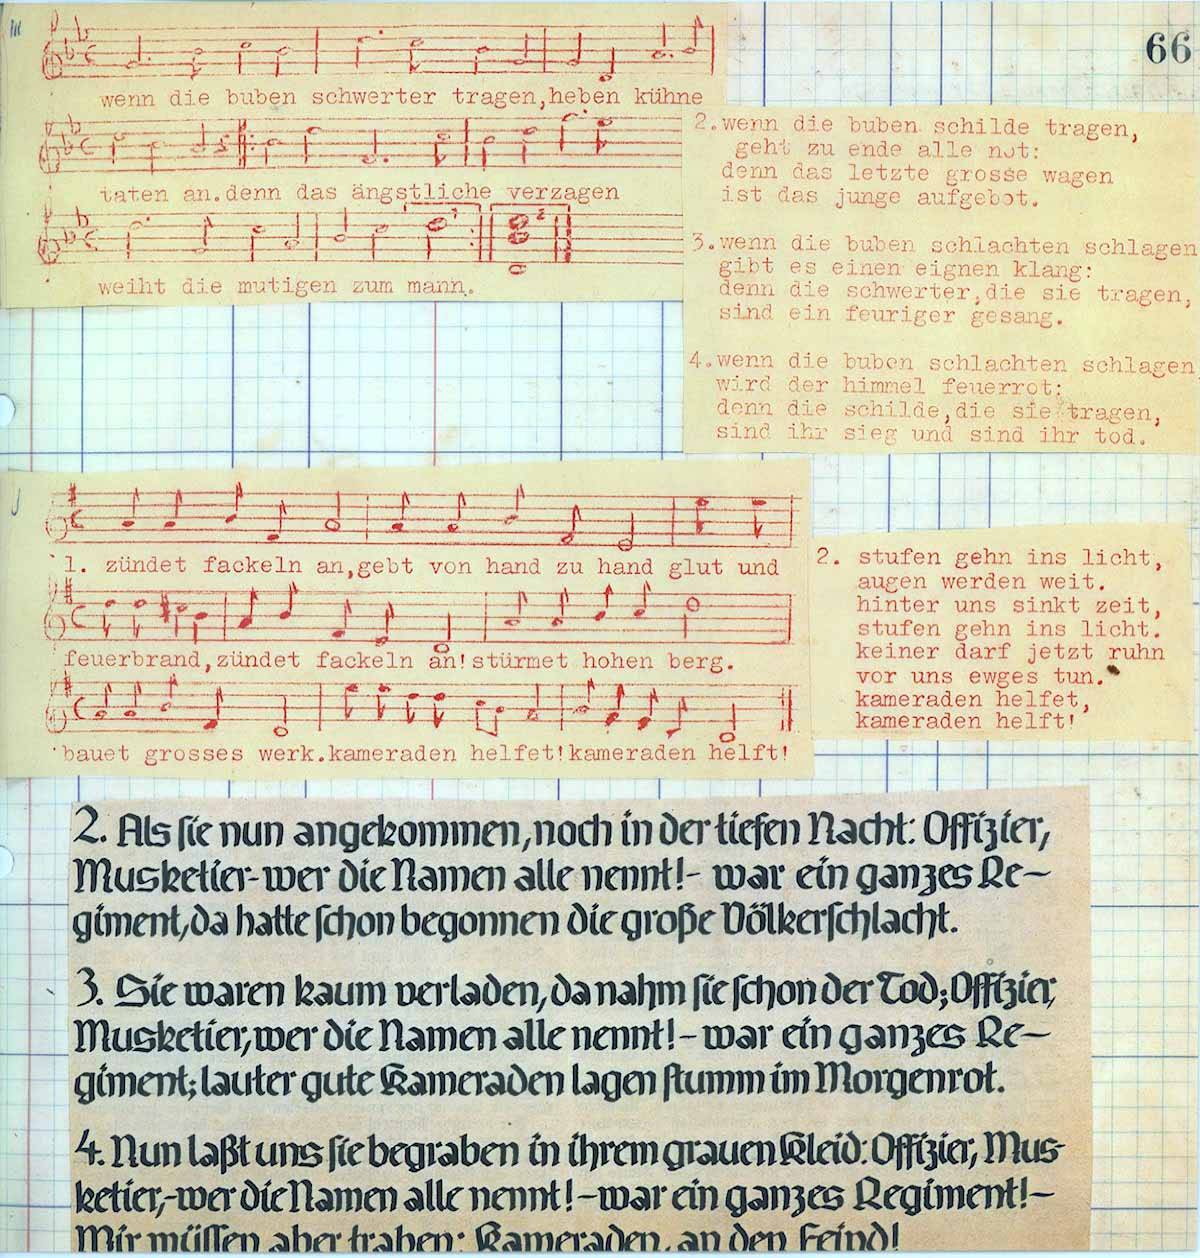 66
wenn die buben schwerter tragen,heben kühne
taten an.denn das ängstliche verzagen
weiht die mutigen zum mann.
2.wenn die buben schilde tragen,
geht zu ende alle not:
denn das letzte grosse wagen
ist das junge aufgebot.
3.wenn die buben schlachten schlagen
gibt es einen eignen klang:
denn die schwerter,die sie tragen,
sind ein feuriger gesang.
4.wenn die buben schlachten schlagen
wird der himmel feuerrot:
denn die schilde,die sie tragen,
sind ihr sieg und sind ihr tod.
1. zündet fackeln an,gebt von hand zu hand glut und
feuerbrand,zündet fackeln an!stürmet hohen berg.
bauet grosses werk.kameraden helfet!kameraden helft!
2. stufen gehn ins licht,
augen werden weit.
hinter uns sinkt zeit,
stufen gehn ins licht.
keiner darf jetzt ruhn
vor uns ewges tun.
kameraden helfet,
kameraden helft!
2. Als sie nun angekommen, noch in der tiefen Nacht: Offizier,
Musketier-wer die Namen alle nennt!- war ein ganzes Re-
giment, da hatte schon begonnen die große Völkerschlacht.
3. Sie waren kaum verladen, da nahm sie schon der Tod; Offizier,
Musketier, wer die Namen alle nennt!-war ein ganzes Re-
giment; lauter gute Kameraden lagen stumm im Morgenrot.
4. Nun laßt uns sie begraben in ihrem grauen Kleid: Offizier, Mus-
ketier,-wer die Namen alle nennt!-war ein ganzes Regiment!-
Mir müssen aber traben: Kameraden, an den Feind!